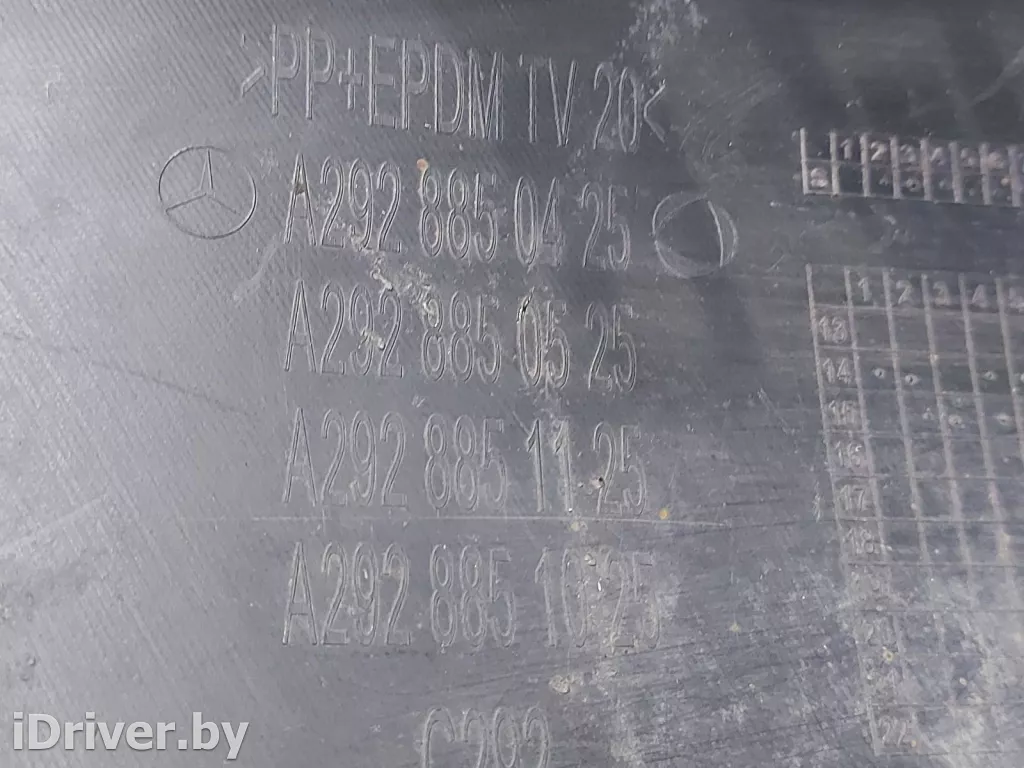 >PP+EPDM TV 20<
A292 885 04 25
A292 885 05 25
A292 885 11 25
A292 885 10 25
C292
1 2 3 4 5 6
1 2 3 4
13
14
15
16
17
18
iDriver.by